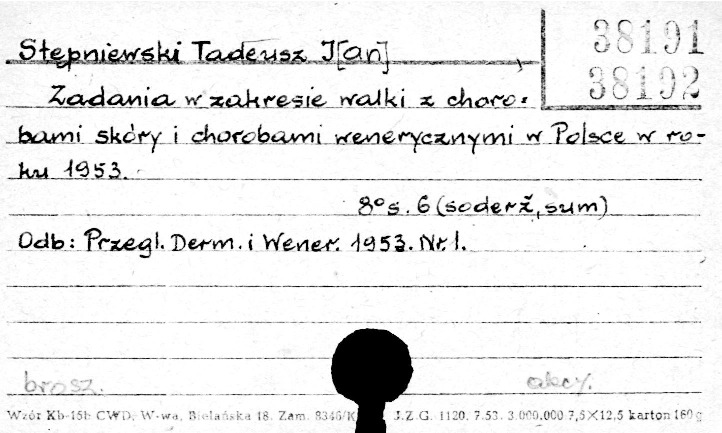 Stępniewski Tadeusz J[an]
38191
38192
Zadania w zakresie walki z choro-
bami skóry i chorobami wenerycznymi w Polsce w ro-
ku 1953.
8° s. 6 (soderž, sum)
Odb: Przegl. Derm. i Wener. 1953. Nr 1.
brosz. akcy.
Wzór Kb-15b CWD, W-wa, Bielańska 18. Zam. 8346/K J.Z.G. 1120. 7.53. 3.000.000 7,5×12,5 karton 160 g